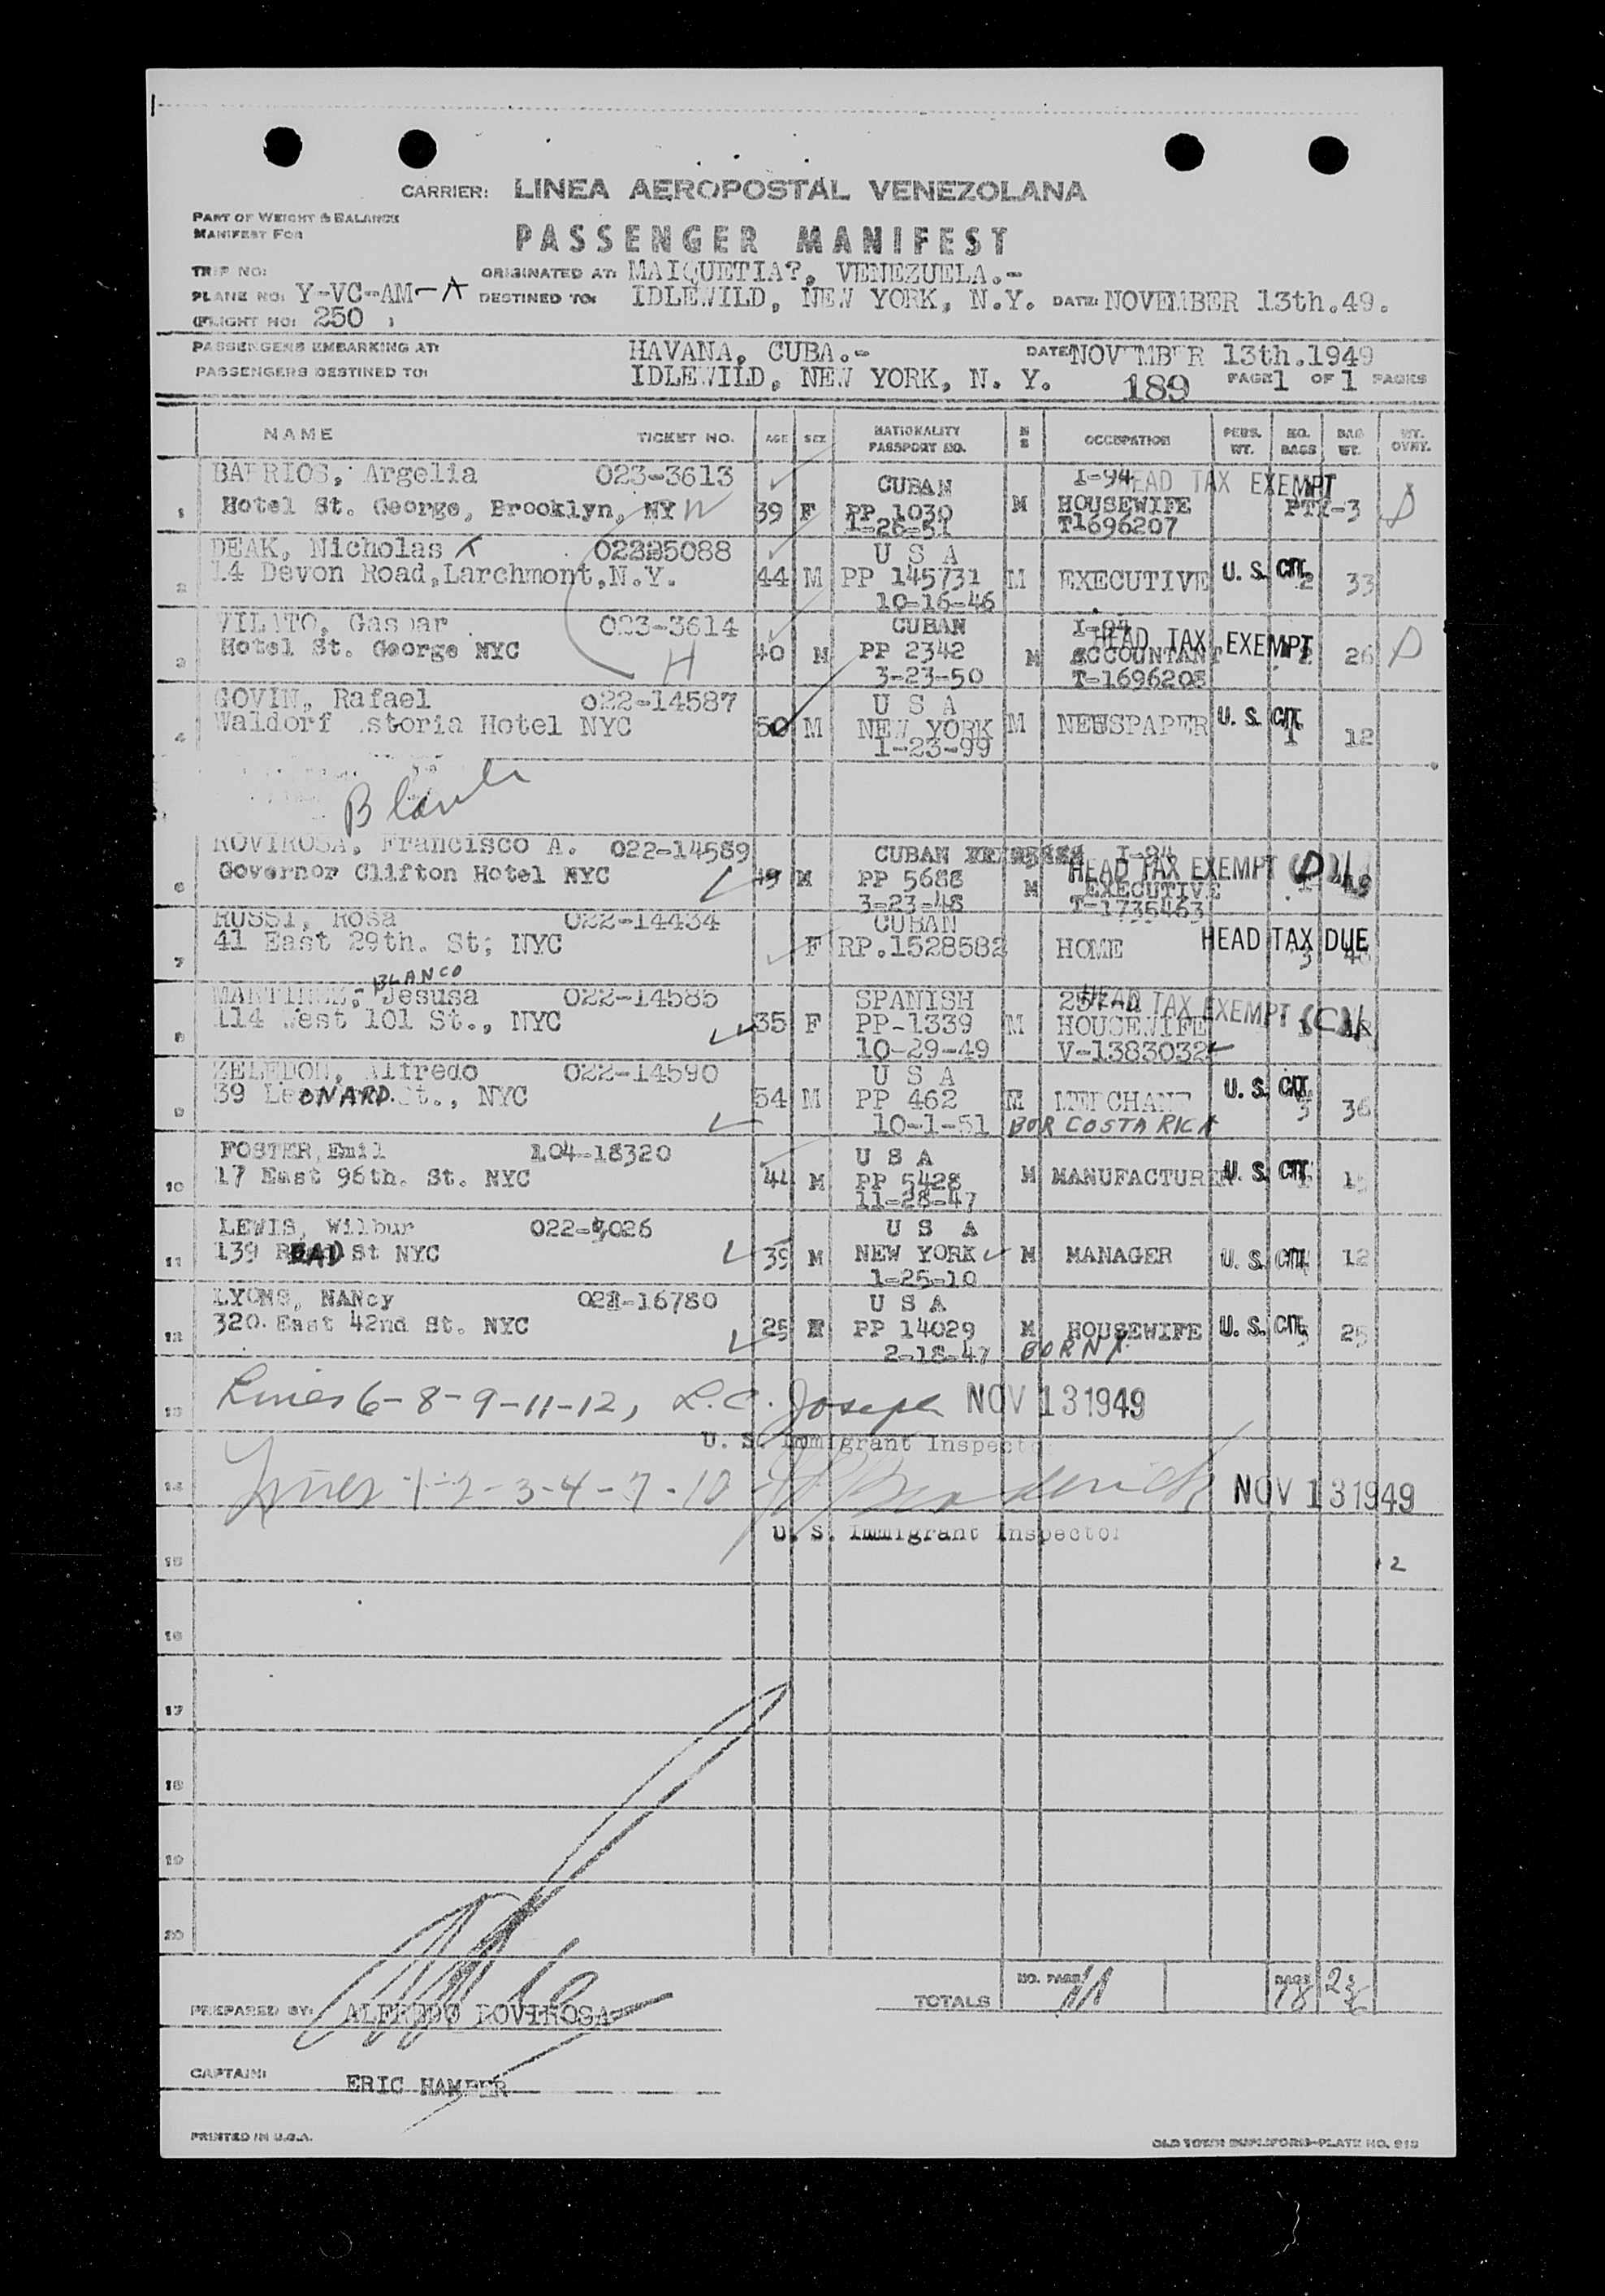 CARRIER: LINEA AEROPOSTAL VENEZOLANA
PART OF WEIGHT & BALANCE
MANIFEST FOR
PASSENGER MANIFEST
TRIP NO: ORIGINATED AT: MAIQUETIA?, VENEZUELA.-
PLANE NO: Y-VC-AM-A DESTINED TO: IDLEWILD, NEW YORK, N.Y. DATE: NOVEMBER 13th.49.
(FLIGHT NO: 250 )
PASSENGERS EMBARKING AT: HAVANA, CUBA.- DATE: NOVEMBER 13th.1949
PASSENGERS DESTINED TO: IDLEWILD, NEW YORK, N. Y. 189 PAGE 1 OF 1 PAGES
NAME TICKET NO. AGE SEX NATIONALITY PASSPORT NO. M S OCCUPATION PERS. WT. NO. BAGS BAG WT. WT. OVRT.
BARRIOS, Argelia 023-3613 CUBAN I-94 HEAD TAX EXEMPT
1 Hotel St. George, Brooklyn, NY 39 F PP 1030 M HOUSEWIFE PTX-3 D
1-26-51 T1696207
DEAK, Nicholas 022-25088 U S A
2 14 Devon Road, Larchmont, N.Y. 44 M PP 145731 M EXECUTIVE U. S. CIT. 2 33
10-16-46
VILATO, Gaspar 023-3614 CUBAN I-94 HEAD TAX EXEMPT
3 Hotel St. George NYC H 40 M PP 2342 M ACCOUNTANT 26 D
3-23-50 T-1696208
GOVIN, Rafael 022-14587 U S A
4 Waldorf Astoria Hotel NYC 50 M NEW YORK M NEWSPAPER U. S. CIT. 1 12
1-23-99
Blank
ROVIROSA, Francisco A. 022-14589 CUBAN I-94 HEAD TAX EXEMPT (D)
6 Governor Clifton Hotel NYC 49 M PP 5688 M EXECUTIVE
3-23-48 T-1735463
RUSSI, Rosa 022-14434 CUBAN
7 41 East 29th. St; NYC F RP.1528582 HOME HEAD TAX DUE 3 40
BLANCO
MARTINEZ, Jesusa 022-14585 SPANISH HEAD TAX EXEMPT (C)
8 114 West 101 St., NYC 35 F PP-1339 M HOUSEWIFE
10-29-49 V-1383032
ZELEDON, Alfredo 022-14590 U S A
9 39 LeONARD St., NYC 54 M PP 462 M MERCHANT U. S. CIT. 3 36
10-1-51 BOR COSTA RICA
FOSTER, Emil 104-18320 U S A
10 17 East 96th. St. NYC 44 M PP 5428 M MANUFACTURER U. S. CIT.
11-28-47
LEWIS, Wilbur 022-9026 U S A
11 139 READ St NYC 39 M NEW YORK M MANAGER U. S. CIT. 12
1-25-10
LYONS, NANcy 021-16780 U S A
12 320 East 42nd St. NYC 25 F PP 14029 M HOUSEWIFE U. S. CIT. 25
2-18-47 BOR NY.
13 Lines 6-8-9-11-12, L.C. Joseph NOV 13 1949
U. S. Immigrant Inspector
14 Lines 1-2-3-4-7-10 NOV 13 1949
U. S. Immigrant Inspector
15 2
16
17
18
19
20
TOTALS NO. PASS 11 BAGS 18
PREPARED BY: ALFREDO ROVIROSA
CAPTAIN: ERIC HAMBER
PRINTED IN U.S.A. OLD TOWN DUPLIFORM-PLATE NO. 913